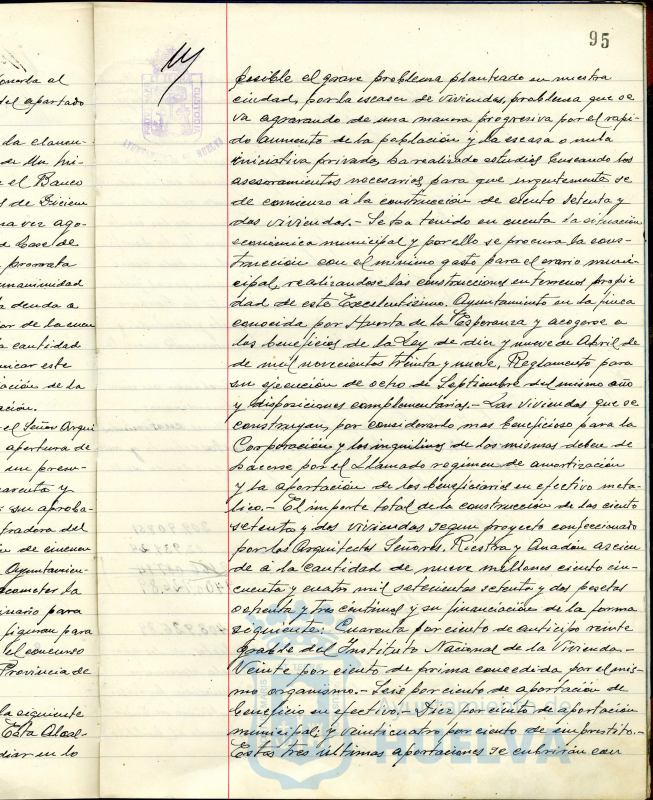 95
posible el grave problema planteado en nuestra
ciudad, por la escasez de viviendas, problema que se
va agravando de una manera progresiva por el rapi-
do aumento de la poblacion y la escasa o nula
iniciativa privada, ha realizado estudios buscando los
asesoramientos necesarios para que urgentemente se
de comienzo á la construcción de ciento setenta y
dos viviendas.- Se ha tenido en cuenta la situación
económica municipal y por ello se procura la cons-
trucción con el minimo gasto para el erario muni-
cipal, realizandose las construcciones en terrenos propie
dad de este Excelentisimo Ayuntamiento en la finca
conocida por Huerta de la Esperanza y acogerse a
los beneficios de la Ley de diez y nueve de Abril de
de mil novecientos treinta y nueve, Reglamento para
su ejecución de ocho de Septiembre del mismo año
y disposiciones complementarias.- Las viviendas que se
construyan, por considerarlo mas beneficioso para la
Corporación y los inquilinos de las mismas deben de
hacerse por el llamado regimen de amortización
y la aportación de los beneficiarios en efectivo meta-
lico.- El importe total de la construcción de las ciento
setenta y dos viviendas segun proyecto confeccionado
por los Arquitectos Señores Riestra y Anadón ascien-
de á la cantidad de nueve millones ciento cin-
cuenta y cuatro mil setecientos setenta y dos pesetas
ochenta y tres centimos y su financiación de la forma
siguiente: Cuarenta por ciento de anticipo reinte
grable del Instituto Nacional de la Vivienda.-
Veinte por ciento de prima concedida por el mis-
mo organismo.- Seis por ciento de aportación de
beneficio en efectivo.- Diez por ciento de aportación
municipal; y veinticuatro por ciento de emprestito.-
Estas tres últimas aportaciones se cubrirán con
onerla al
del apartado
la clausu-
el Banco
una vez ago-
d base de
prorrata
unanimidad
deuda a
cantidad
nicar este
ación de la
ación.
el Señor Arqui
apertura de
un presu-
arenta y
su aproba-
gradora del
de cincuen
Ayuntamien-
acometer la
para
figuran para
el concurso
Provincia de
la siguiente
Esta Alcal-
diar en lo
Ayuntamiento de
HUELVA